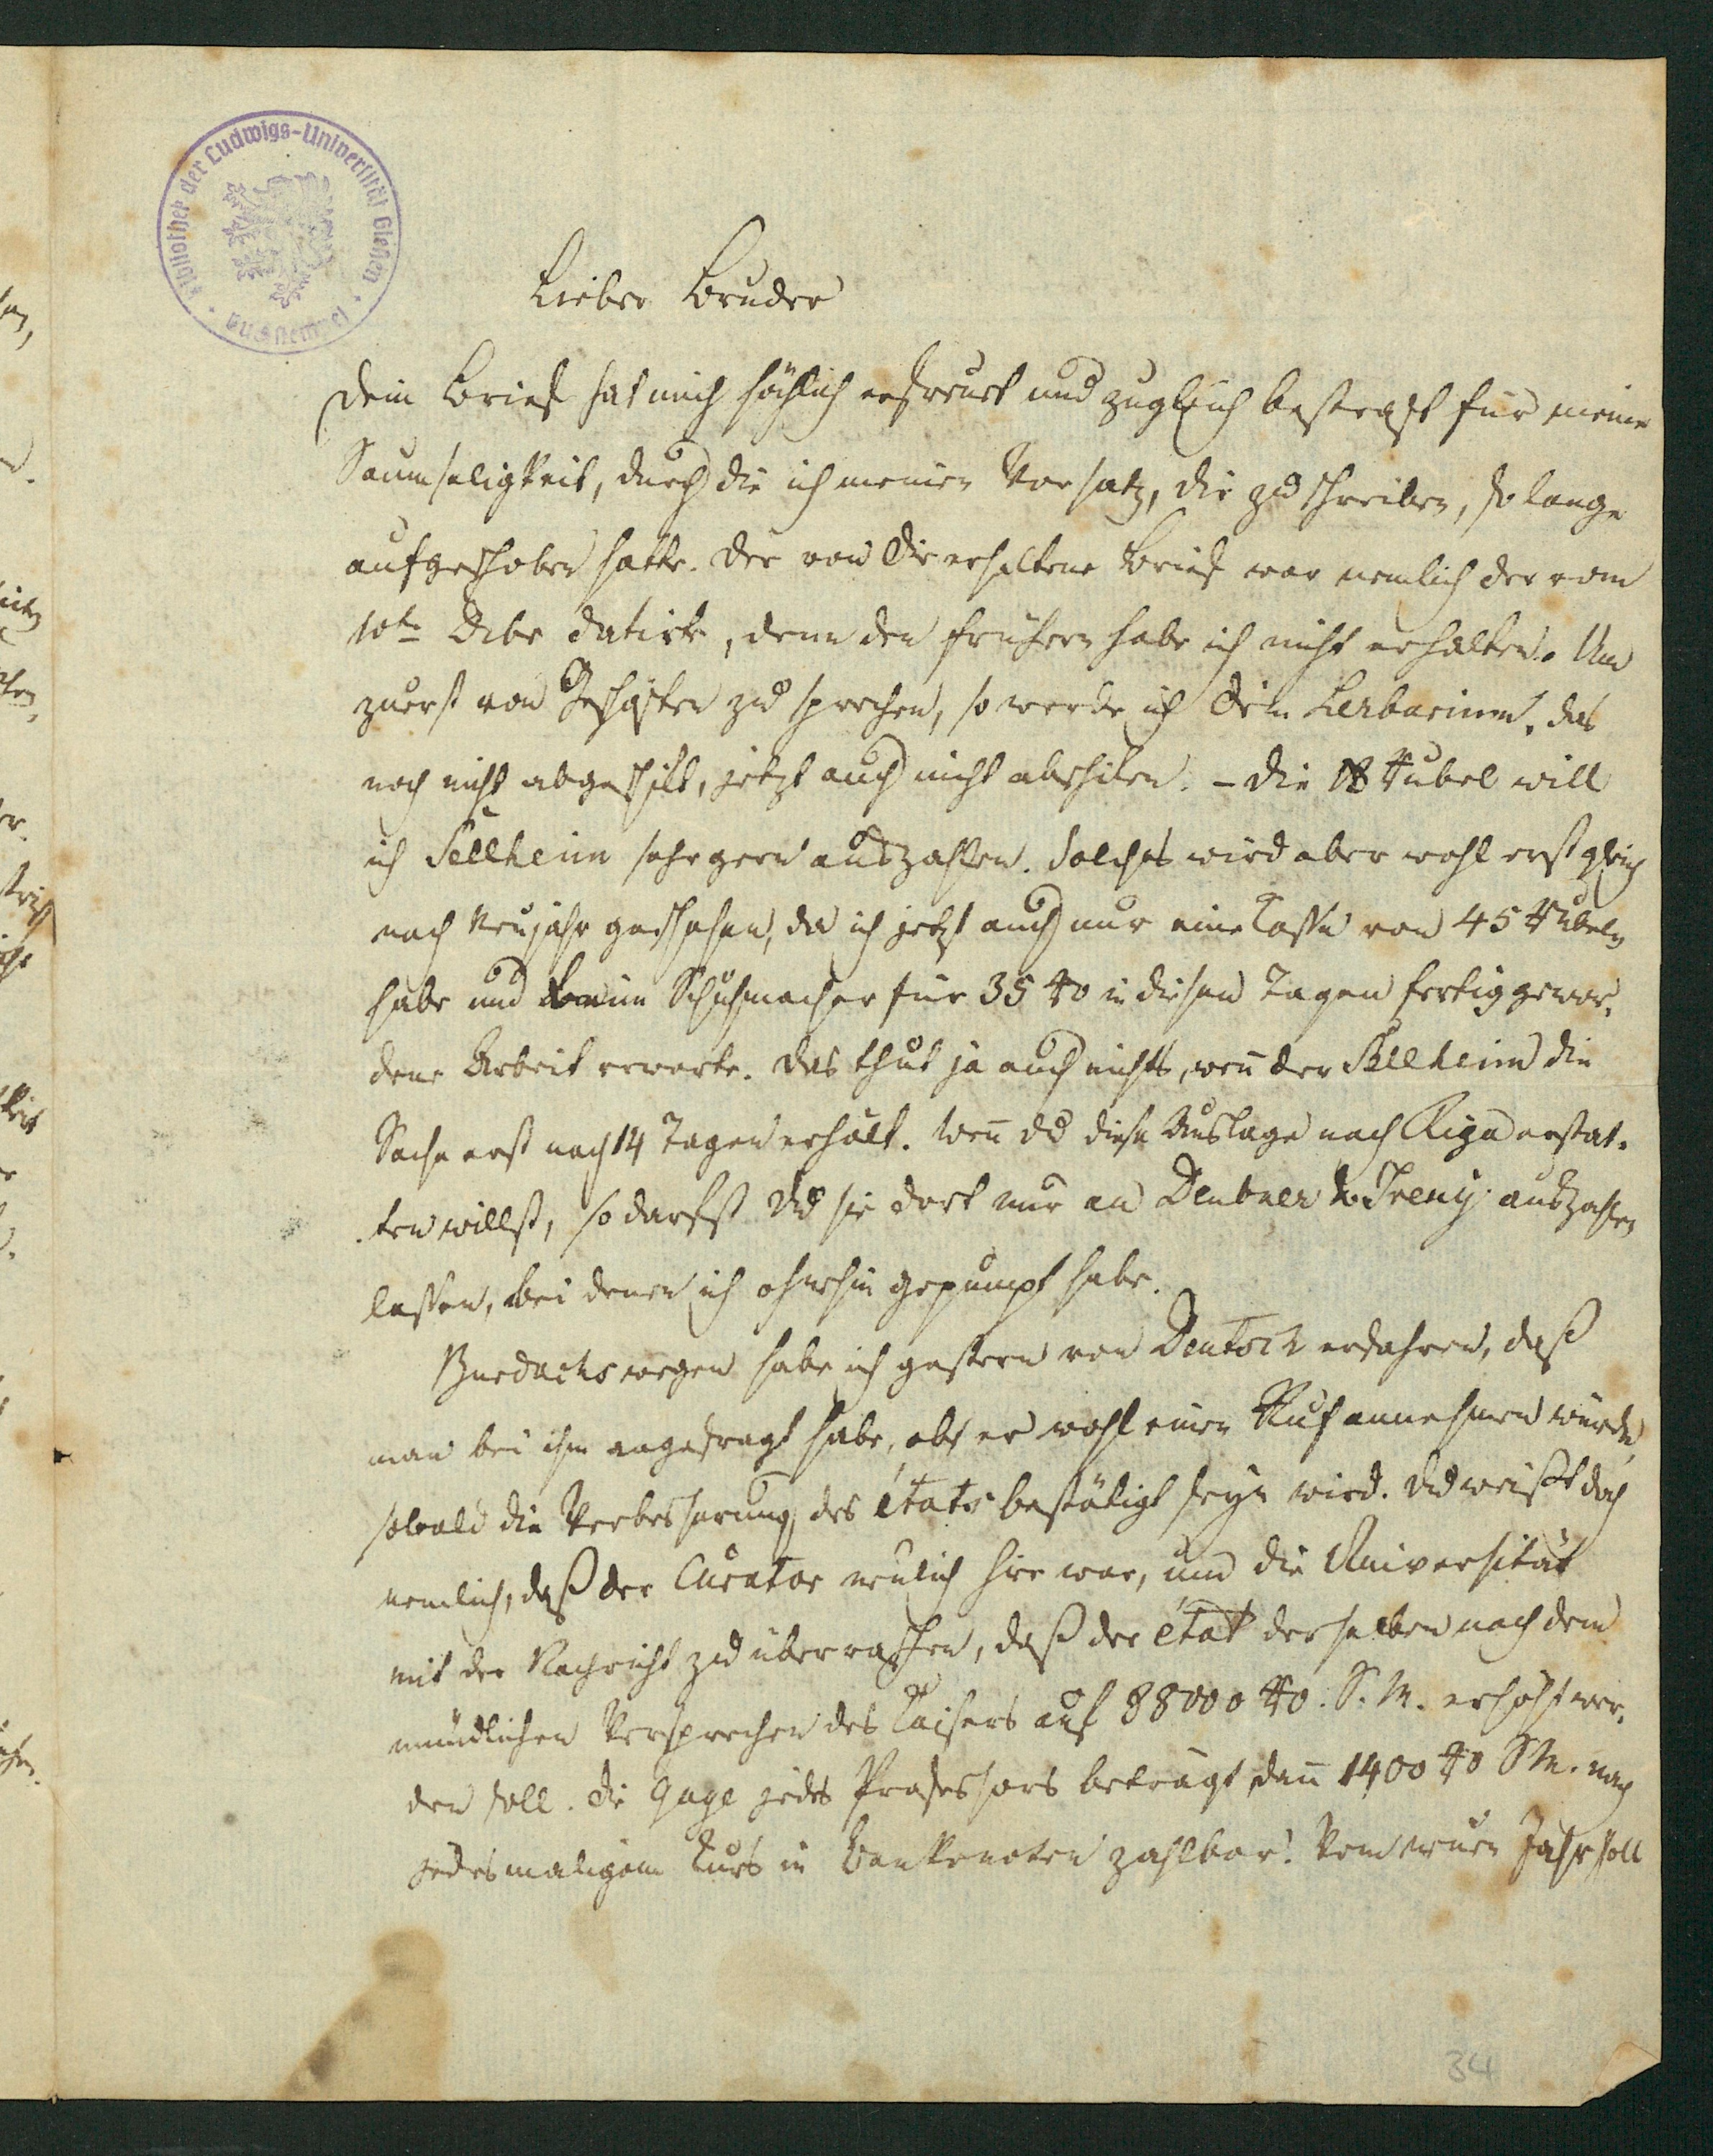 Bibliothek der Ludwigs-Universität Gießen
Lieber Bruder
Dein Brief hat mich höchlich erfreut und zugleich bestraft für meine
Saumseligkeit, durch die ich meinen Vorsatz, Dir zu schreiben, so lange
aufgeschoben hatte. Der von Dir erhaltene Brief war nemlich der vom
10ten Dcbr datirte, denn den frühern habe ich nicht erhalten. Um
zuerst von Geschäften zu sprechen, so werde ich Dein Herbarium, das
noch nicht abgeschikt, jetzt auch nicht abschiken. – Die 18 Rubel will
ich Sellheim sehr gern auszahlen. Solches wird aber wohl erst gleich
nach Neujahr geschehen, da ich jetzt auch nur eine Casse von 45 Rubeln
habe und beim Schuhmacher für 35 Ro in diesen Tagen fertig gewor-
dene Arbeit erwarte. Das thut ja auch nichts, weñ der Sellheim die
Sache erst nach 14 Tagen erhält. Weñ Du diese Auslage nach Riga erstat-
ten willst, so darfst Du sie dort nur an Deubner u. Treuy auszahlen
lassen, bei denen ich ohnehin gepumpt habe.
Burdachs wegen habe ich gestern von Deutsch erfahren, daß
man bei ihm angefragt habe, ob er wohl einen Ruf annehmen würde,
sobald die Verbesserung des états bestätigt seyn wird. Du weißt doch
nemlich, daß der Curator neulich hier war, um die Universität
mit der Nachricht zu überraschen, daß der état derselben nach dem
mündlichen Versprechen des Kaisers auf 88000 Ro. S. M. erhöht wer-
den soll. Die Gage jedes Professors beträgt dañ 1400 Ro SM. nach
jedesmaligem Curs in Banknoten zahlbar. Vom neuen Jahr soll
34